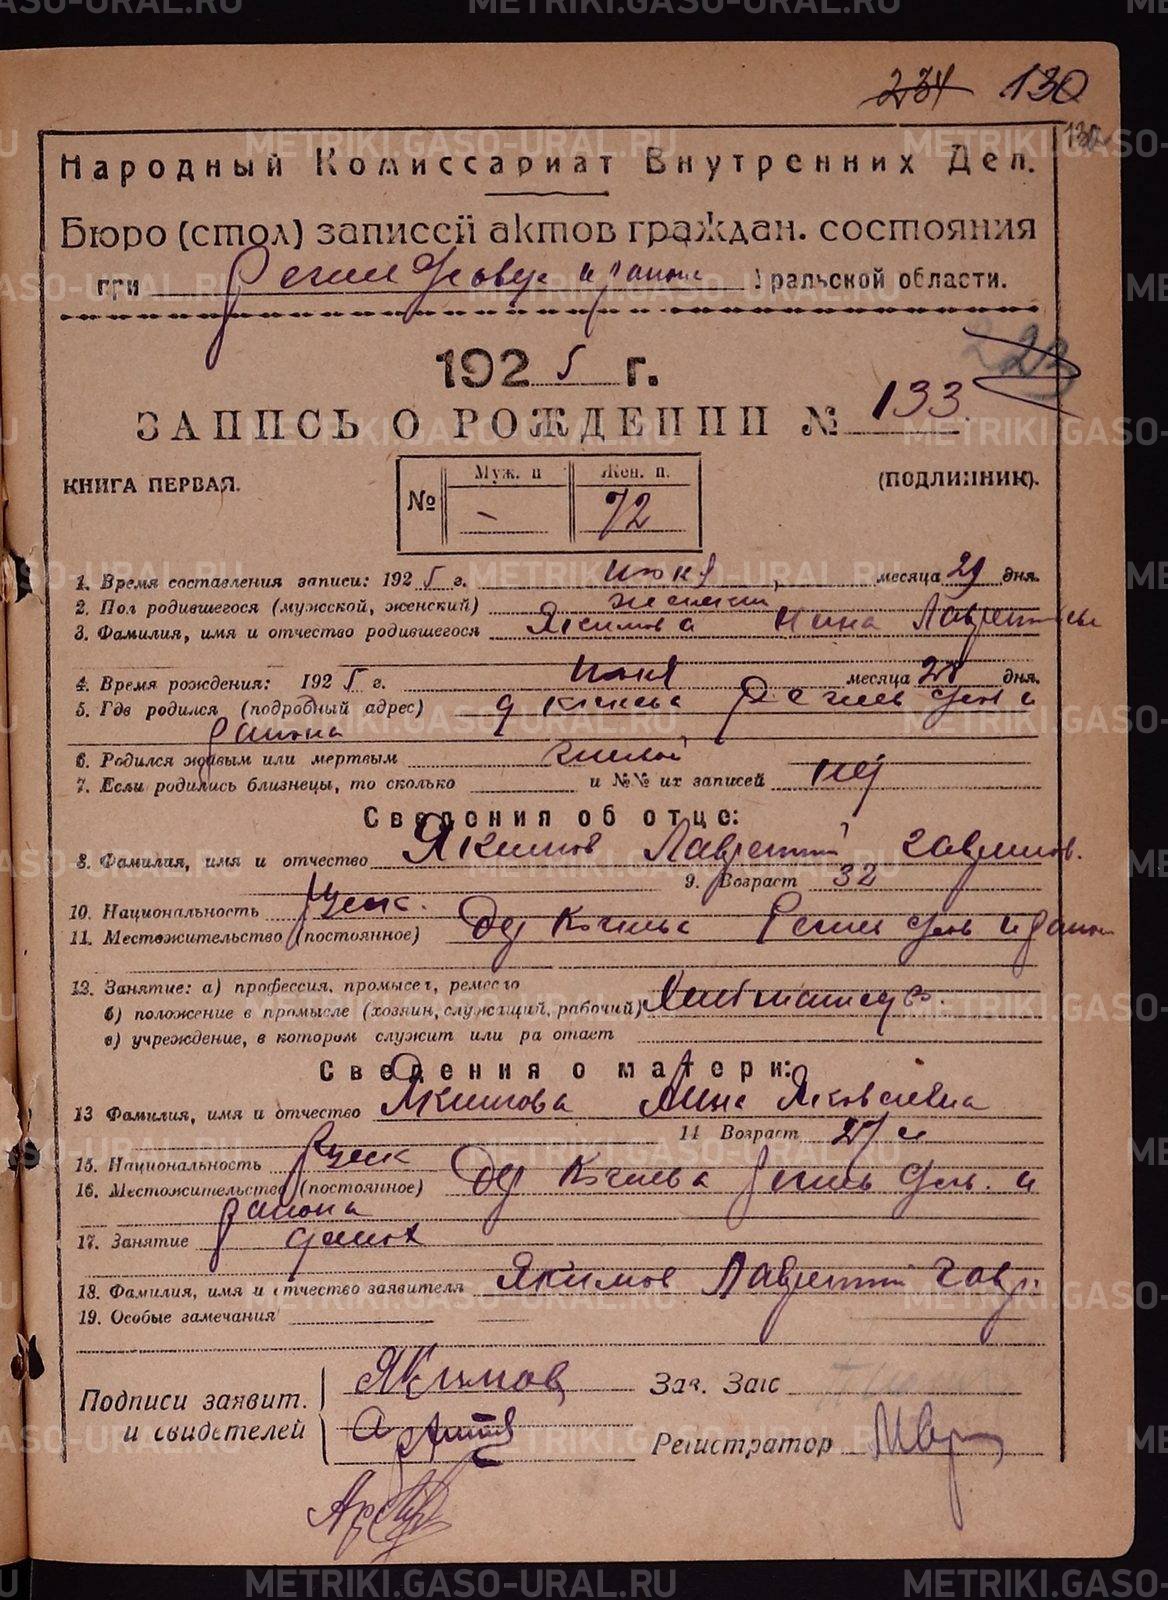 234 130
132
Народный Комиссариат Внутренних Дел.
Бюро (стол) записей актов граждан. состояния
при и района Уральской области.
223
1925 г.
ЗАПИСЬ О РОЖДЕНИИ № 133
КНИГА ПЕРВАЯ. (ПОДЛИННИК).
Муж. п Жен. п.
№ - 72
1. Время составления записи: 1925 г. июня месяца 29 дня.
2. Пол родившегося (мужской, женский) женский
3. Фамилия, имя и отчество родившегося Якимова Нина Лаврентьев
4. Время рождения: 1925 г. июня месяца 28 дня.
5. Где родился (подробный адрес) и
района
6. Родился живым или мертвым живой
7. Если родились близнецы, то сколько и №№ их записей нет
Сведения об отце:
8. Фамилия, имя и отчество Якимов Лаврентий Гаврилов.
9. Возраст 32
10. Национальность Русск.
11. Местожительство (постоянное) Дер и район
12. Занятие: а) профессия, промысел, ремесло
б) положение в промысле (хозяин, служащий, рабочий) Хлебопашец
в) учреждение, в котором служит или работает
Сведения о матери:
13 Фамилия, имя и отчество Якимова Анна Яковлевна
14 Возраст 27
15. Национальность Русск
16. Местожительство (постоянное) Дер и
района
17. Занятие
18. Фамилия, имя и отчество заявителя Якимов Лаврентий Гавр.
19. Особые замечания
Подписи заявит. и свидетелей Якимов Зав. Загс
Регистратор
METRIKI.GASO-URAL.RU